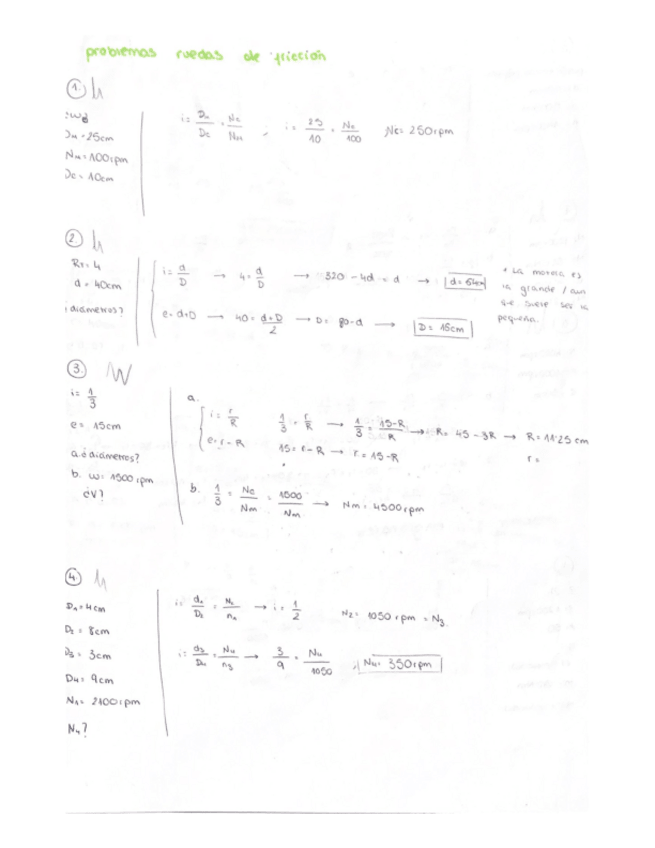 problemas ruedas de fricción
1.
Dm = 25cm
Nm = 100rpm
Dc = 10cm
i = Dm/Dc = Nc/Nm ; i = 25/10 = Nc/100 Nc = 250rpm
2.
Rt = 4
d = 40cm
¿diámetros?
i = d/D → 4 = d/D → 320 - 4d = d → d = 64cm
e = d+D → 40 = d+D/2 → D = 80-d → D = 16cm
* La motora es
la grande / aun
que suele ser la
pequeña.
3.
i = 1/3
e = 15cm
a. ¿diámetros?
b. w = 1500rpm
¿V?
a.
i = r/R 1/3 = r/R → 1/3 = 15-R/R → R = 45 - 3R → R = 11'25 cm
e = r - R 15 = r - R → r = 15 - R r =
b. 1/3 = Nc/Nm = 1500/Nm → Nm = 4500rpm
4.
D1 = 4cm
D2 = 8cm
D3 = 3cm
D4 = 9cm
N1 = 2100rpm
N4?
i = d1/D2 = N2/n1 → i = 1/2 N2 = 1050 rpm = N3
i = d3/D4 = N4/n3 → 3/9 = N4/1050 N4 = 350rpm